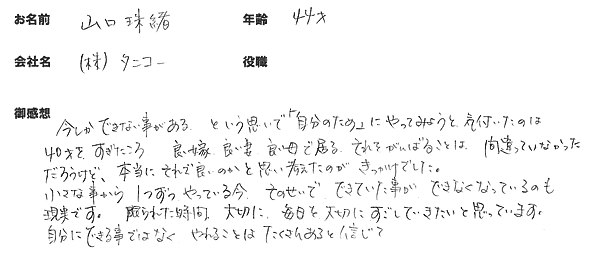 お名前 山口 珠緒 年齢 44才
会社名 (株) タニコー 役職
御感想
今しかできない事がある、という思いで「自分のため」にやってみようと気付いたのは
40才をすぎたころ 良い嫁、良い妻 良い母で居る、それでがんばることは 間違っていなかった
だろうけど、本当にそれで良いのかと思い考えたのが きっかけでした。
小さな事から 1つずつ やっている今、そのせいで できていた事が できなくなっているのも
現実です。 限られた時間、大切に、毎日を大切に すごしていきたいと思っています。
自分にできる事ではなく やれることは たくさんあると信じて